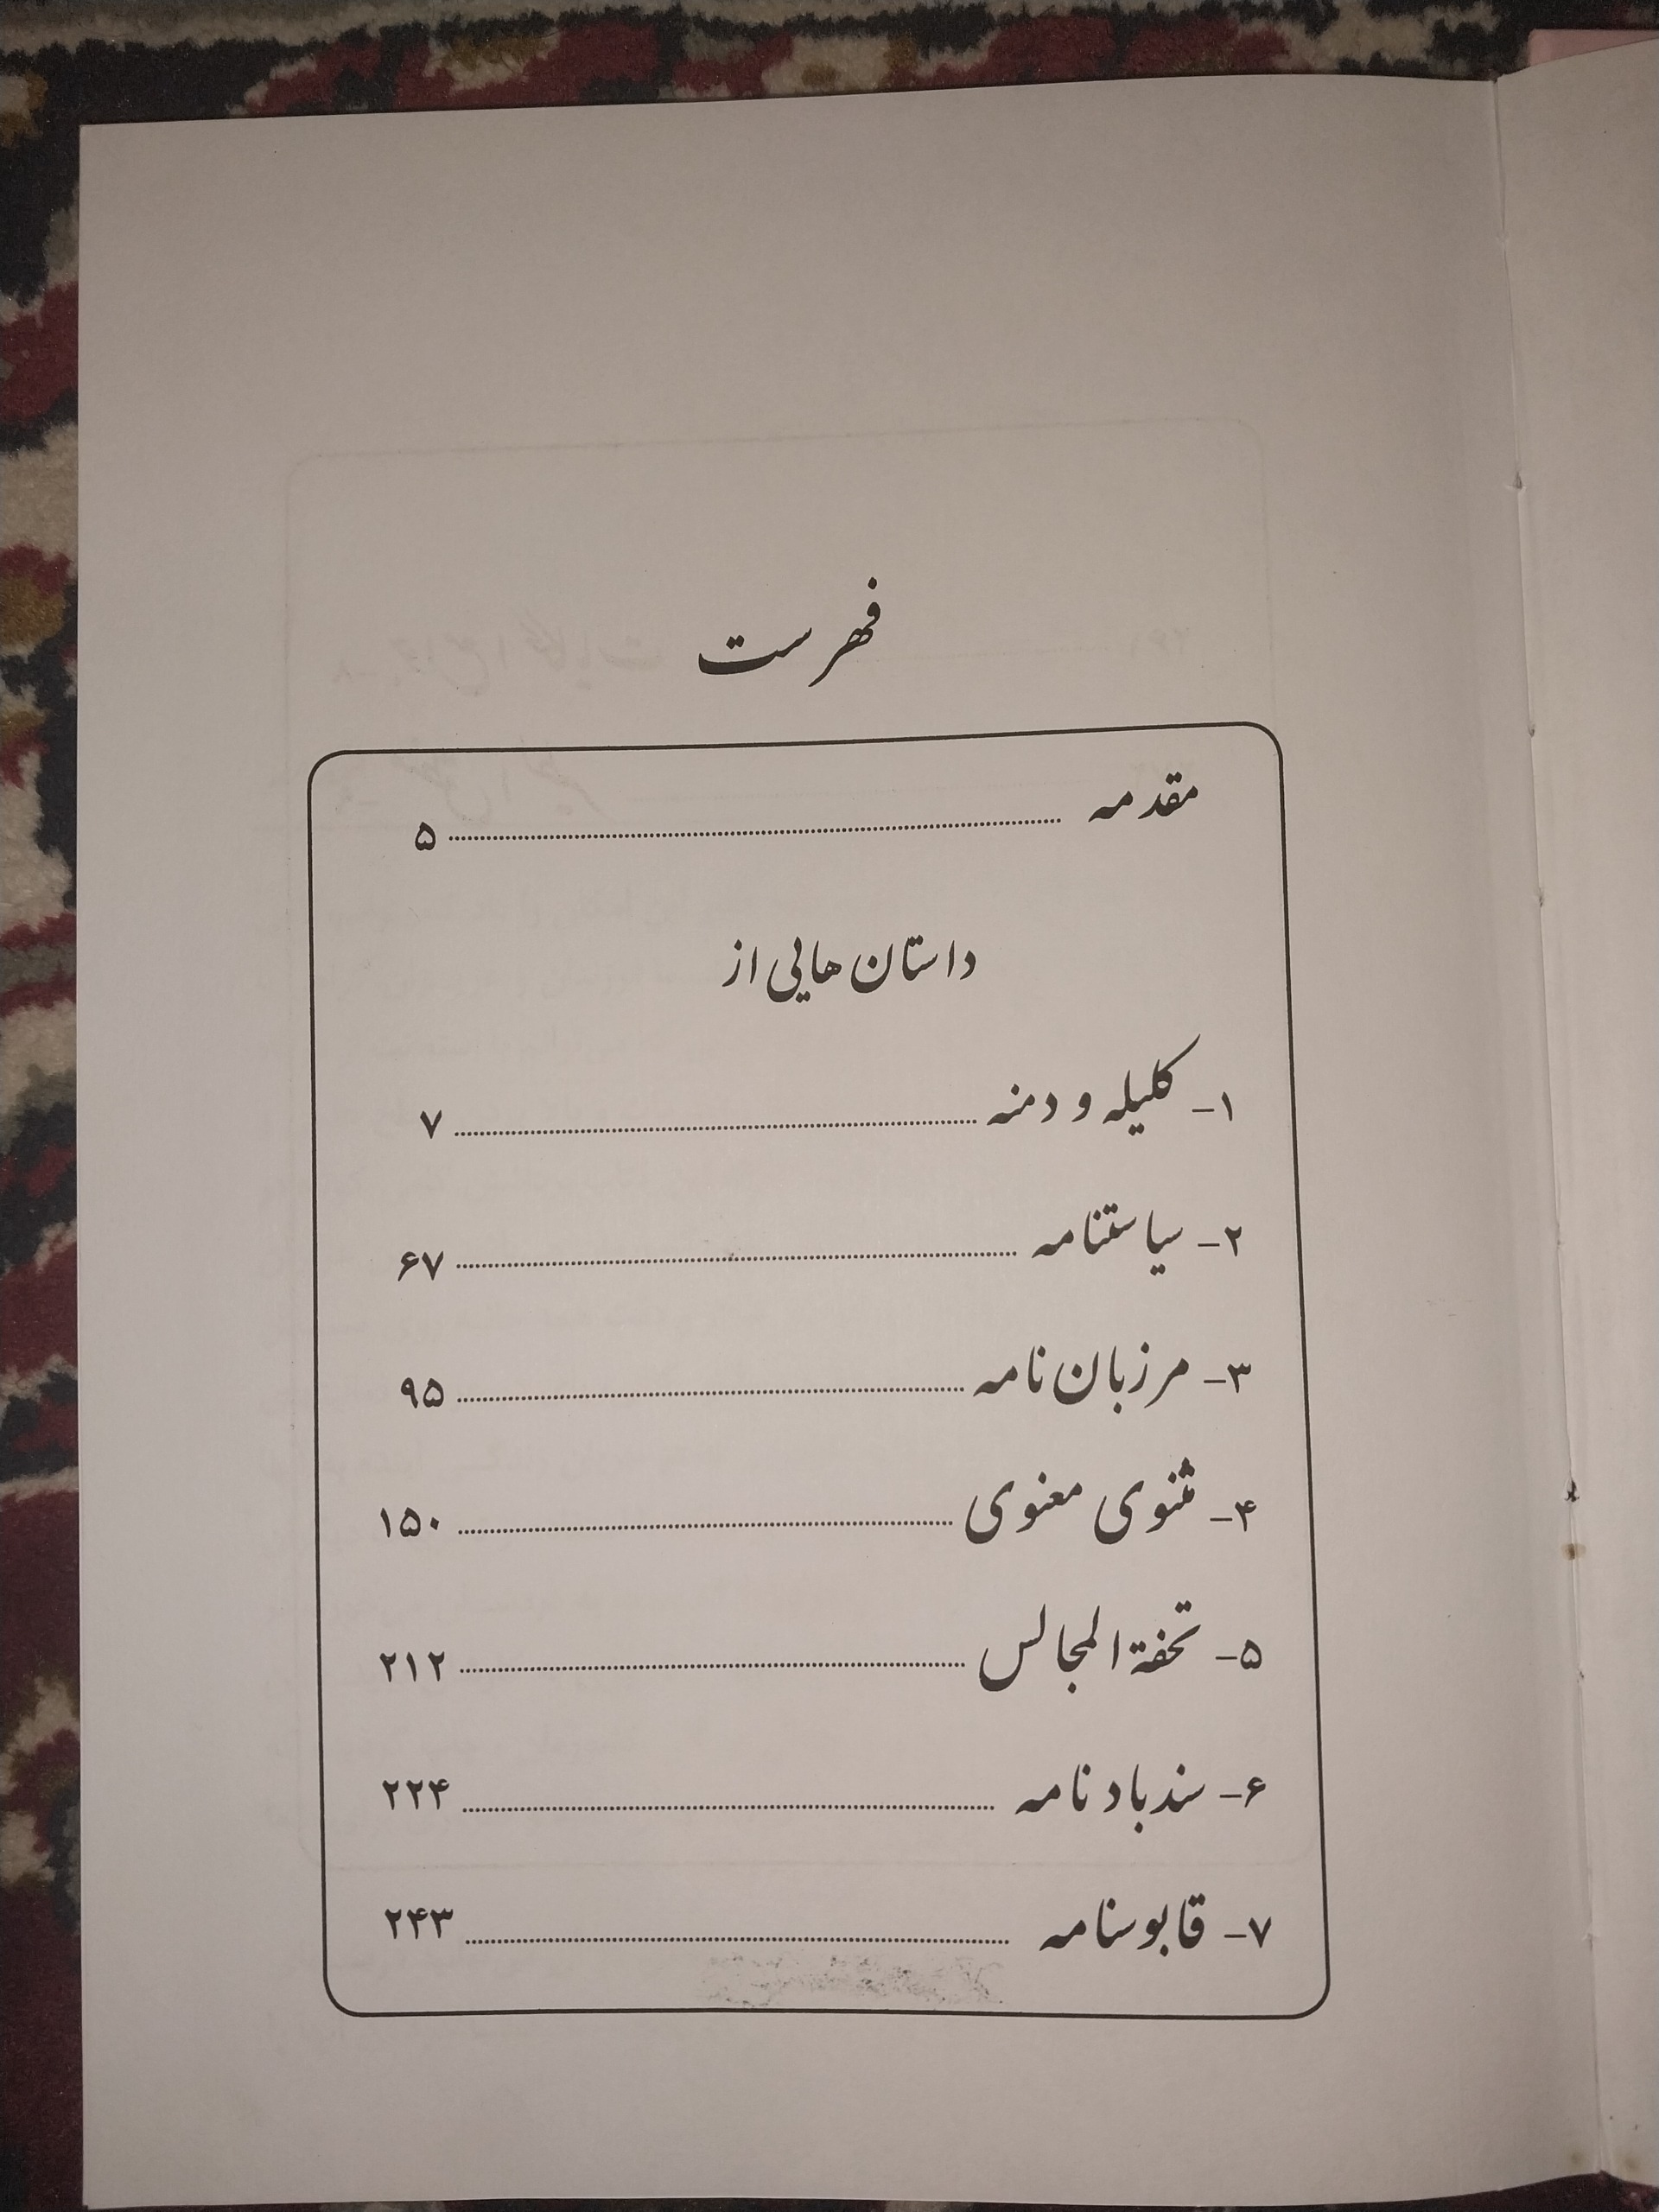 فهرست
مقدمه ........ ۵
داستان هایی از
۱- کلیله و دمنه ........ ۷
۲- سیاستنامه ........ ۶۷
۳- مرزبان نامه ........ ۹۵
۴- مثنوی معنوی ........ ۱۵۰
۵- تحفة المجالس ........ ۲۱۲
۶- سندباد نامه ........ ۲۲۴
۷- قابوسنامه ........ ۲۴۳